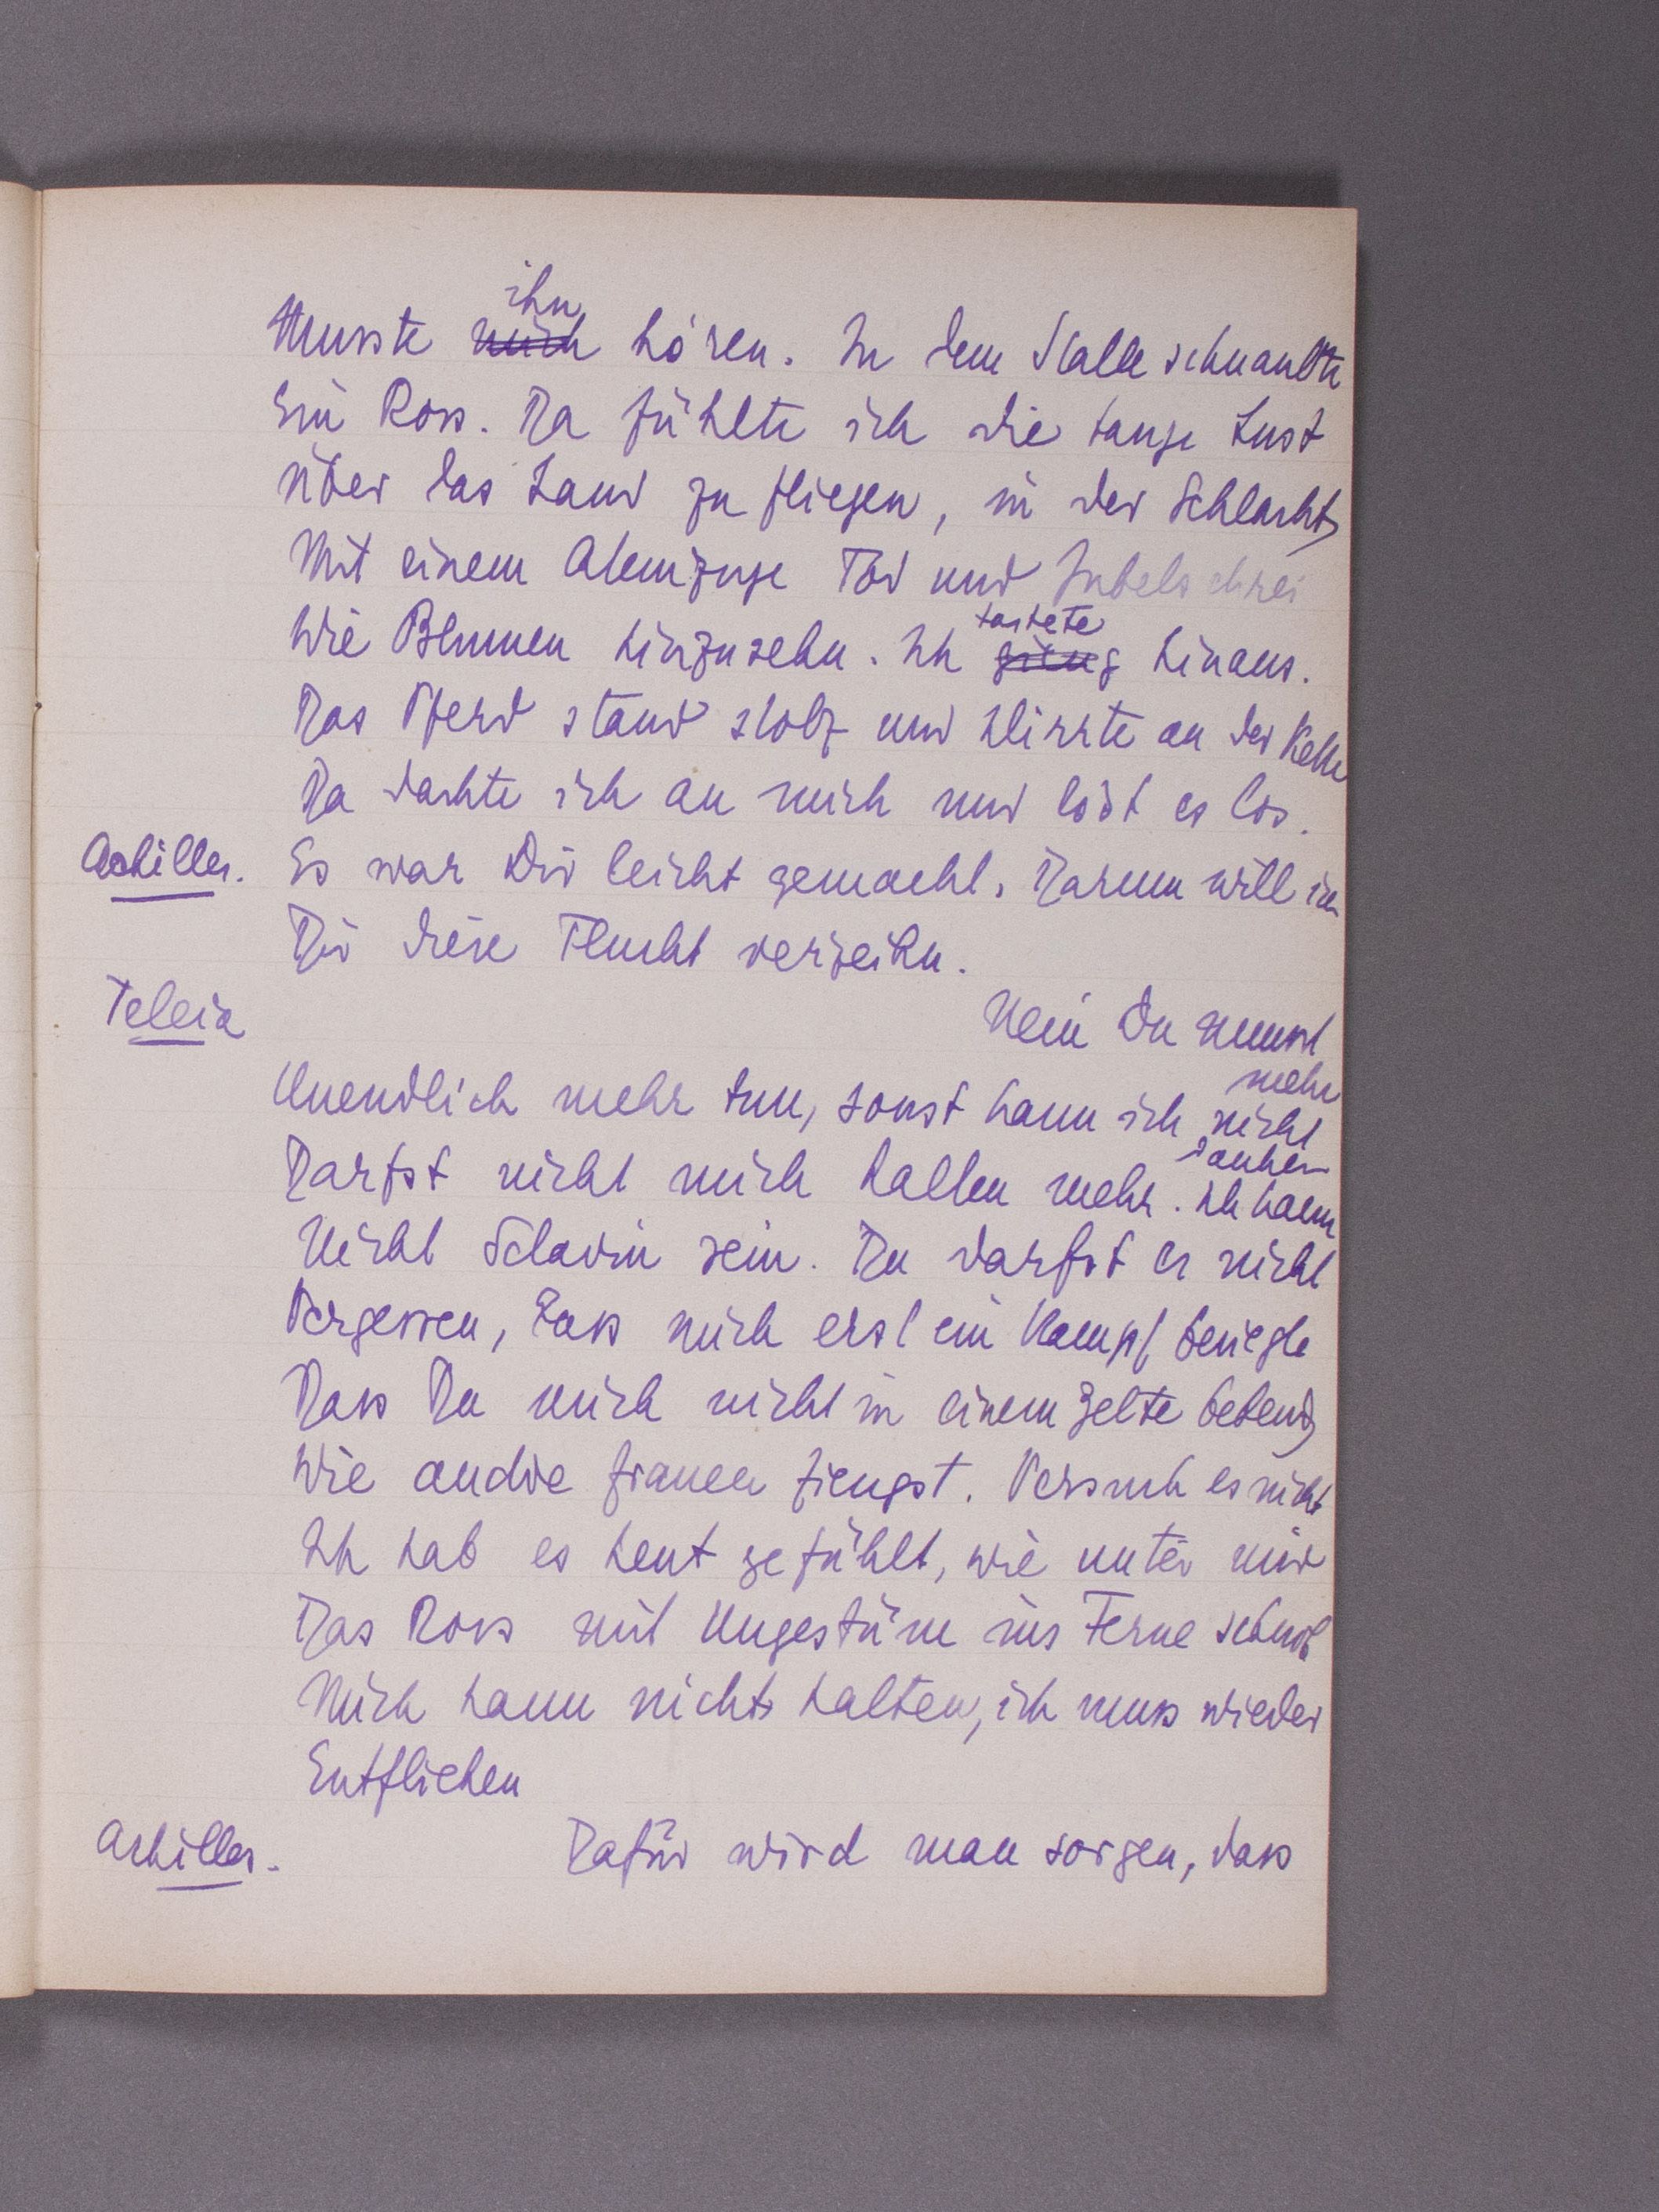 ihn
Musste mich hören. In dem Stalle schnaubte
Ein Ross. Da fühlte ich die lange Lust
Über das Land zu fliegen, in der Schlacht,
Mit einem Atemzuge Tod und Jubelschrei
tastete
Wie Blumen hinzusehn. Ich gieng hinaus.
Das Pferd stand stolz und klirrte an der Kette
Da dachte ich an mich und löst es los.
Achilles. Es war Dir leicht gemacht. Darum will ich
Dir diese Flucht verzeihn.
Teleia Nein Du musst
mehr
Unendlich mehr tun, sonst kann ich nicht
danken
Darfst nicht mich halten mehr. Ich kann
Nicht Sclavin sein. Du darfst es nicht
Vergessen, dass mich erst ein Kampf besiegte
Dass Du mich nicht in einem Zelte bebend,
Wie andre Frauen fiengst. Versuch es nicht
Ich hab es heut gefühlt, wie unter mir
Das Ross mit Ungestüm ins Ferne schnob
Mich kann nichts halten, ich muss wieder
Entfliehen
Achilles. Dafür wird man sorgen, dass